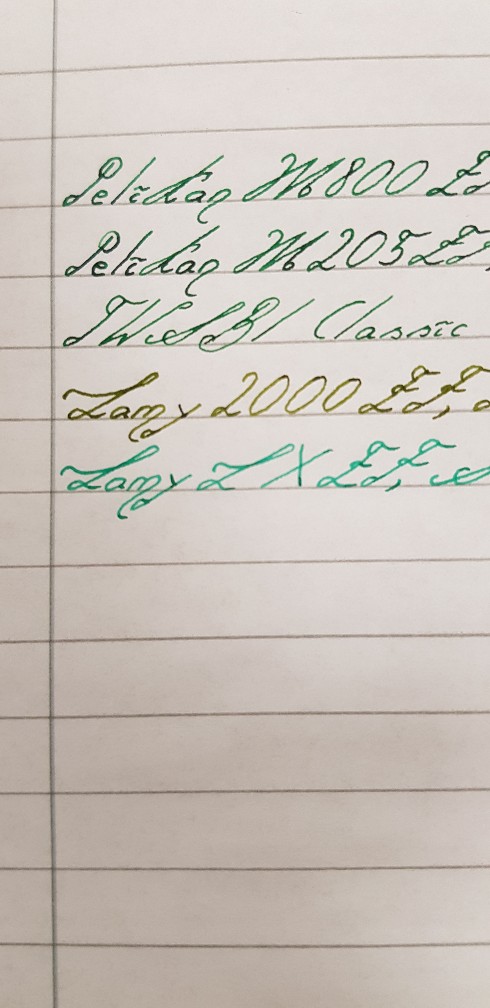 Pelikan M800 EF
Pelikan M205 EF,
TWSBI Classic
Lamy 2000 EF,
Lamy LX EF,